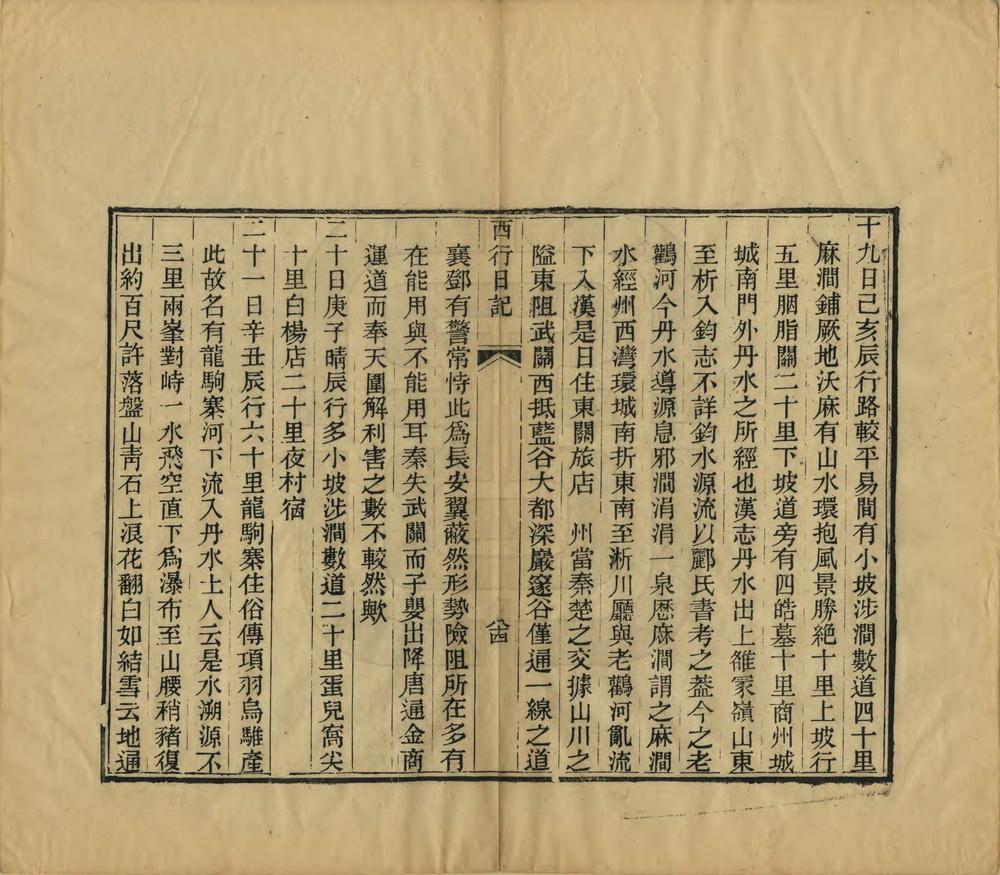 十九日己亥辰行路較平易間有小坡涉澗數道四十里
麻澗鋪厥地沃麻有山水環抱風景勝絕十里上坡行
五里胭脂關二十里下坡道旁有四皓墓十里商州城
城南門外丹水之所經也漢志丹水出上雒冢嶺山東
至析入鈞志不詳鈞水源流以酈氏書考之葢今之老
鸛河今丹水導源息邪澗涓涓一泉歷麻澗謂之麻澗
水經州西灣環城南折東南至淅川廳與老鸛河亂流
下入漢是日住東關旅店　州當秦楚之交據山川之
隘東阻武關西抵藍谷大都深巖邃谷僅通一線之道
西行日記　八四
襄鄧有警常恃此爲長安翼蔽然形勢險阻所在多有
在能用與不能用耳秦失武關而子嬰出降唐通金商
運道而奉天圍解利害之數不較然歟
二十日庚子晴辰行多小坡涉澗數道二十里蛋兒窩尖
十里白楊店二十里夜村宿
二十一日辛丑辰行六十里龍駒寨住俗傳項羽烏騅產
此故名有龍駒寨河下流入丹水土人云是水溯源不
三里兩峯對峙一水飛空直下爲瀑布至山腰稍豬復
出約百尺許落盤山靑石上浪花翻白如結雪云地通